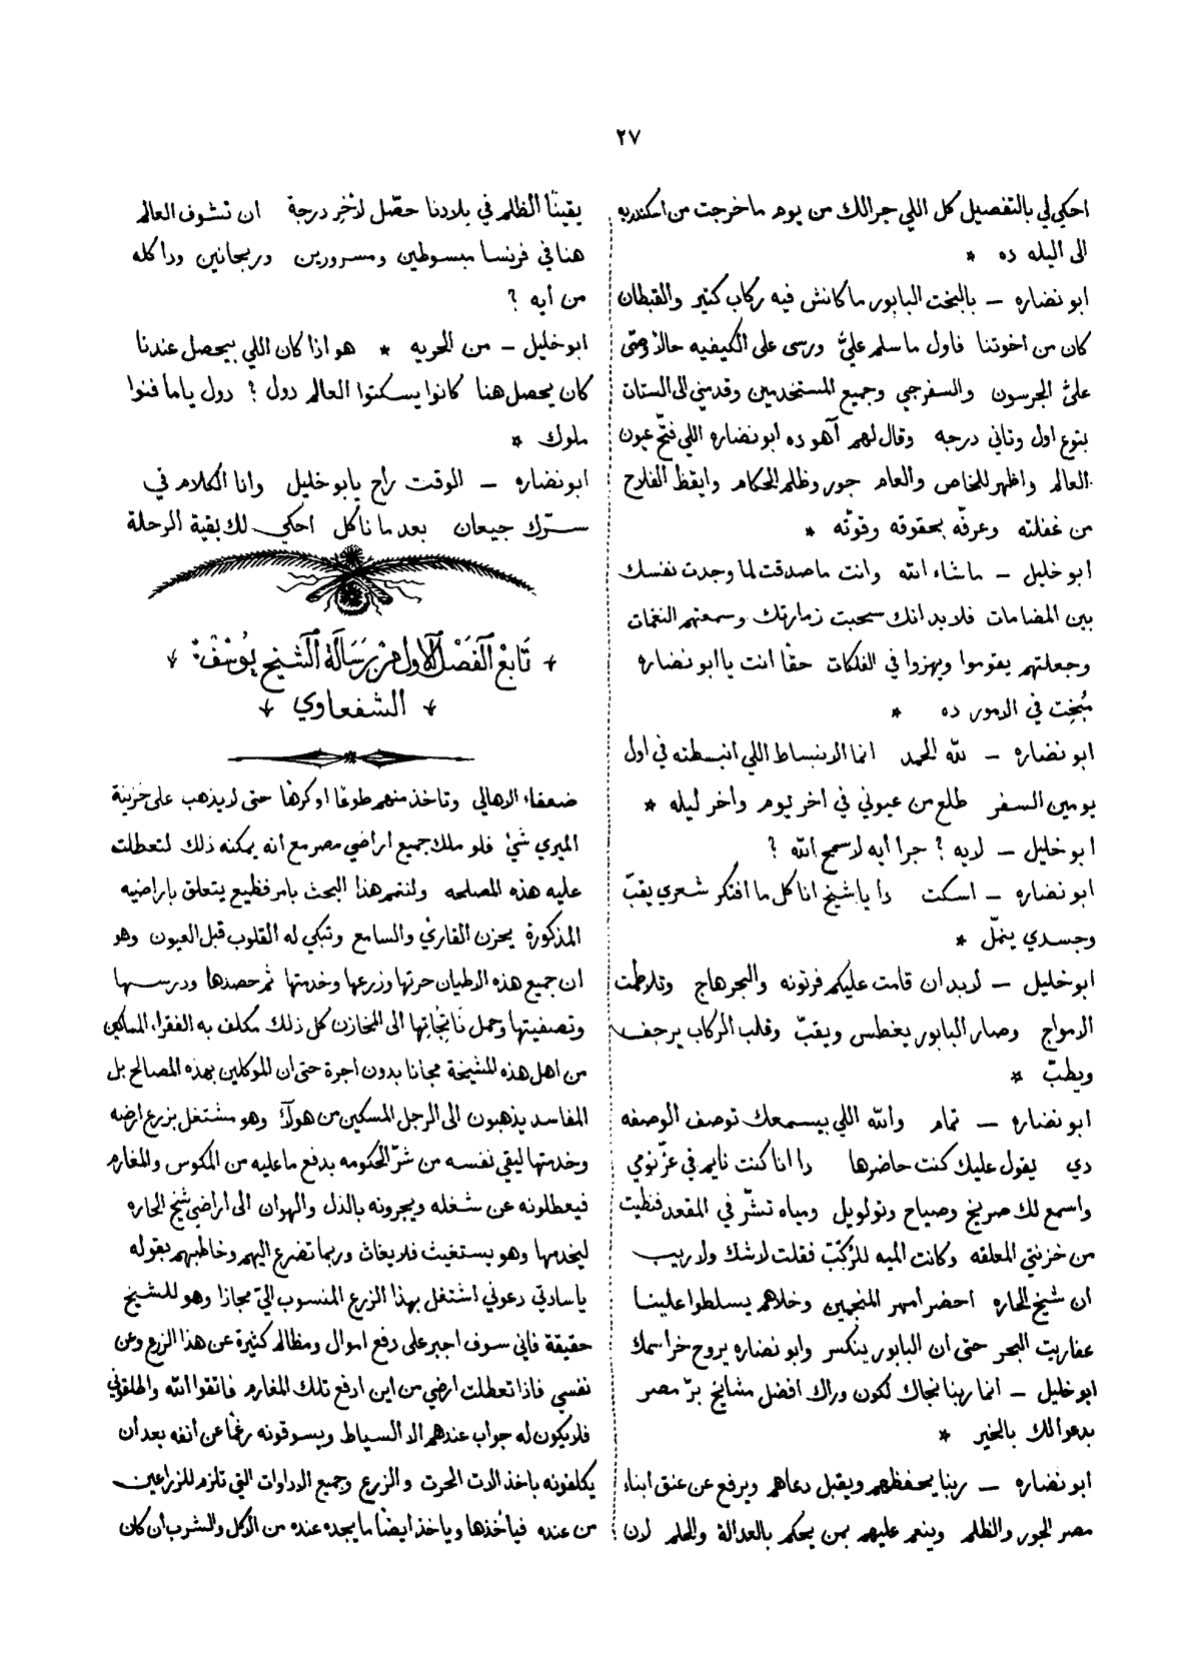 ٢٧
احكي لي بالتفصيل كل اللي جرالك من يوم ما خرجت من اسكندريه
الى اليله ده *
ابو نضاره – بالبخت البابور ما كانش فيه ركاب كتير والقبطان
كان من اخوتنا فاول ما سلم عليّ ورسى على الكيفيه حالاً وصّى
عليّ الجرسون والسفرجي وجميع المستخدمين وقدمني الى الستات
بتوع اول وتاني درجه وقال لهم آهو ده ابو نضاره اللي فتّح عيون
العالم واظهر للخاص والعام جور وظلم الحكام وايقظ الفلاح
من غفلته وعرفّه بحقوقه وقوتّه *
ابو خليل – ما شاء الله وانت ما صدقت لما وجدت نفسك
بين المضامات فلا بد انك سحبت زمارتك وسمعتهم النغمات
وجعلتهم يقوموا ويهزوا في الفلكات حقّا انت يا ابو نضاره
مُبْخِت في الامور ده *
ابو نضاره – لله الحمد انما الانبساط اللي انبسطته في اول
يومين السفر طلع من عيوني في اخر يوم واخر ليله *
ابو خليل – لايه ؟ جرا أيه لا سمح الله ؟
ابو نضاره – اسكت دا يا شيخ انا كل ما افتكر شعري يقبّ
وجسدي ينمّل *
ابو خليل – لابد ان قامت عليكم فرتونه والبحر هاج وتلاطمت
الامواج وصار البابور يغطس ويقبّ وقلب الركاب يرجف
ويطبّ *
ابو نضاره – تمام والله اللي بيسمعك توصف الوصفه
دي يقول عليك كنت حاضرها دا انا كنت نايم في عزّ نومي
واسمع لك صريخ وصياح وتولويل ومياه تشرّ في المقعد فنطيت
من خزنتي المعلقه وكانت الميه للرُكَبْ فقلت لا شك ولا ريب
ان شيخ الحاره احضر امهر المنجمين وخلاهم يسلطوا علينا
عفاريت البحر حتى ان البابور ينكسر وابو نضاره يروح خرا سمك
ابو خليل – انما ربنا نجاك لكون وراك افضل مشايخ برّ مصر
بدعوا لك بالخير *
ابو نضاره – ربنا يحفظهم ويقبل دعاهم ويرفع عن عنق ابناء
مصر الجور والظلم وينعم عليهم بمن يحكم بالعدالة والحلم لان
يقيننا الظلم في بلادنا حصّل لأخِر درجة ان تشوف العالم
هنا في فرنسا مبسوطين ومسرورين وريحانين ودا كله
من أيه ؟
ابو خليل – من الحريه * هو اذا كان اللي بيحصل عندنا
كان يحصل هنا كانوا يسكتوا العالم دول ؟ دول ياما فنوا
ملوك *
ابو نضاره – الوقت راح يا بو خليل وانا الكلام في
سرّك جيعان بعد ما نأكل احكي لك بقية الرحلة
تَابع الفَصْل الاول من رسَالة الشيخ يُوسُف
الشفعاوي
ضعفاء الاهالي وتاخذ منهم طوعًا او كرهًا حتى لا يذهب على خزينة
الميري شئ فلو ملك جميع اراضي مصر مع انه يمكنه ذلك لتعطلت
عليه هذه المصلحه ولنتم هذا البحث بامر فظيع يتعلق باراضيه
المذكورة يحزن القاريْ والسامع وتبكي له القلوب قبل العيون وهو
ان جميع هذه الاطيان حرتها وزرعها وخدمتها ثم حصدها ودرسها
وتصفيتها وحمل نَاتِجَاتِها الى المخازن كل ذلك مكلف به الفقراء المساكين
من اهل هذه المشيخة مجانا بدون اجرة حتى ان الموكلين بهذه المصالح بل
المفاسد يذهبون الى الرجل المسكين من هولآء وهو مشتغل بزرع ارضه
وخدمتها ليقي نفسه من شرّ الحكومه بدفع ما عليه من المكوس والمغارم
فيعطلونه عن شغله ويجرونه بالذل والهوان الى اراضي شيخ الحاره
ليخدمها وهو يستغيث فلا يغاث وربما تضرع اليهم وخاطبهم بقوله
يا سادتي دعوني اشتغل بهذا الزرع المنسوب اليّ مجازا وهو للشيخ
حقيقة فاني سوف اجبر على دفع اموال ومظالم كثيرة عن هذا الزرع وعن
نفسي فاذا تعطلت ارضي من اين ادفع تلك المغارم فاتقوا الله واطلقوني
فلا يكون له جواب عندهم الا السياط ويسوقونه رغمًا عن انفه بعد أن
يكلفونه باخذ الات الحرت والزرع وجميع الادوات التي تلزم للزراعين
من عنده فيأخذها وياخذ ايضًا ما يجده عنده من الاكل والشرب ان كان